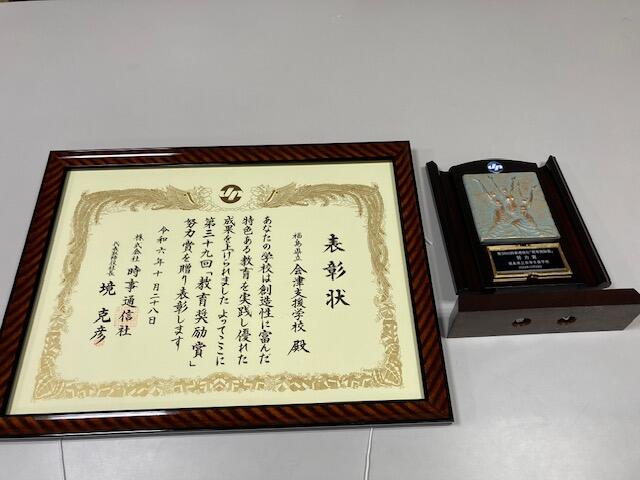 表彰状
福島県立 会津支援学校 殿
あなたの学校は創造性に富んだ
特色ある教育を実践し優れた
成果を上げられました よってここに
第三十九回「教育奨励賞」
努力賞を贈り表彰します
令和六年十月二十八日
株式会社 時事通信社
代表取締役社長 境 克彦
努力賞